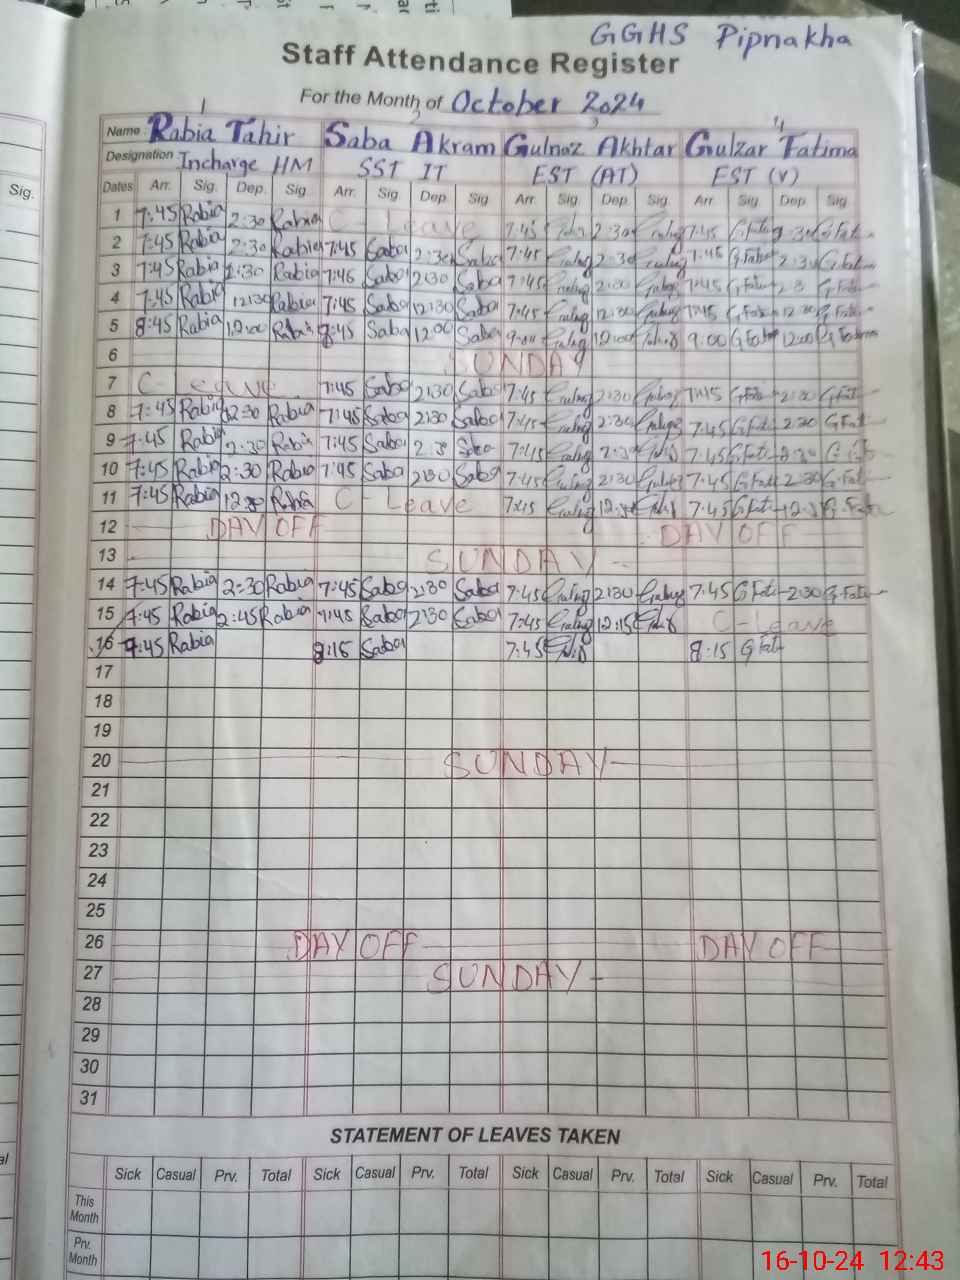 GGHS Pipnakha
Staff Attendance Register
For the Month of October 2024
1 2 3 4
Name Rabia Tahir Saba Akram Gulnaz Akhtar Gulzar Fatima
Designation Incharge HM SST IT EST (AT) EST (V)
Sig.
Dates Arr. Sig. Dep. Sig. Arr. Sig Dep. Sig Arr. Sig Dep. Sig Arr. Sig Dep Sig
1 7:45 Rabia 2:30 Rabia C-Leave 7:45 2:30 7:45
2 7:45 Rabia 2:30 Rabia 7:45 Saba 2:30 Saba 7:45 2:30 7:45 2:30
3 7:45 Rabia 2:30 Rabia 7:45 Saba 2:30 Saba 7:45 2:30 7:45
4 7:45 Rabia 12:30 Rabia 7:45 Saba 12:30 Saba 7:45 12:30 7:45 12:30
5 8:45 Rabia 12:00 Rabia 8:45 Saba 12:00 Saba 9:00 12:00 9:00 12:00
6 SUNDAY
7 C-Leave 7:45 Saba 2:30 Saba 7:45 2:30 7:45 2:30
8 7:45 Rabia 2:30 Rabia 7:45 Saba 2:30 Saba 7:45 2:30 7:45 G Fati 2:30 G Fati
9 7:45 Rabia 2:30 Rabia 7:45 Saba 2:3 Saba 7:45 2:3 7:45 G Fati 2:30
10 7:45 Rabia 2:30 Rabia 7:45 Saba 2:30 Saba 7:45 2:30 7:45 G Fati 2:30 G Fati
11 7:45 Rabia 12:30 Rabia C-Leave 7:45 12:30 7:45 G Fati 12:30
12 DAY OFF DAY OFF
13 SUNDAY
14 7:45 Rabia 2:30 Rabia 7:45 Saba 2:30 Saba 7:45 2:30 7:45 G Fati 2:30 G Fati
15 7:45 Rabia 2:45 Rabia 7:45 Saba 2:30 Saba 7:45 12:15 C-Leave
16 7:45 Rabia 8:15 Saba 7:45 8:15 G Fati
17
18
19
20 SUNDAY
21
22
23
24
25
26 DAY OFF DAY OFF
27 SUNDAY
28
29
30
31
STATEMENT OF LEAVES TAKEN
Sick Casual Prv. Total Sick Casual Prv. Total Sick Casual Prv. Total Sick Casual Prv. Total
This Month
Prv. Month
16-10-24 12:43